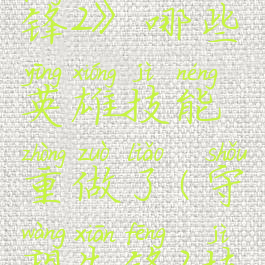 锋2》 哪些
yīng xióng jì néng
英雄技能
zhòng zuò liǎo shǒu
重做了(守
wàng xiān fēng jì
望先锋2技